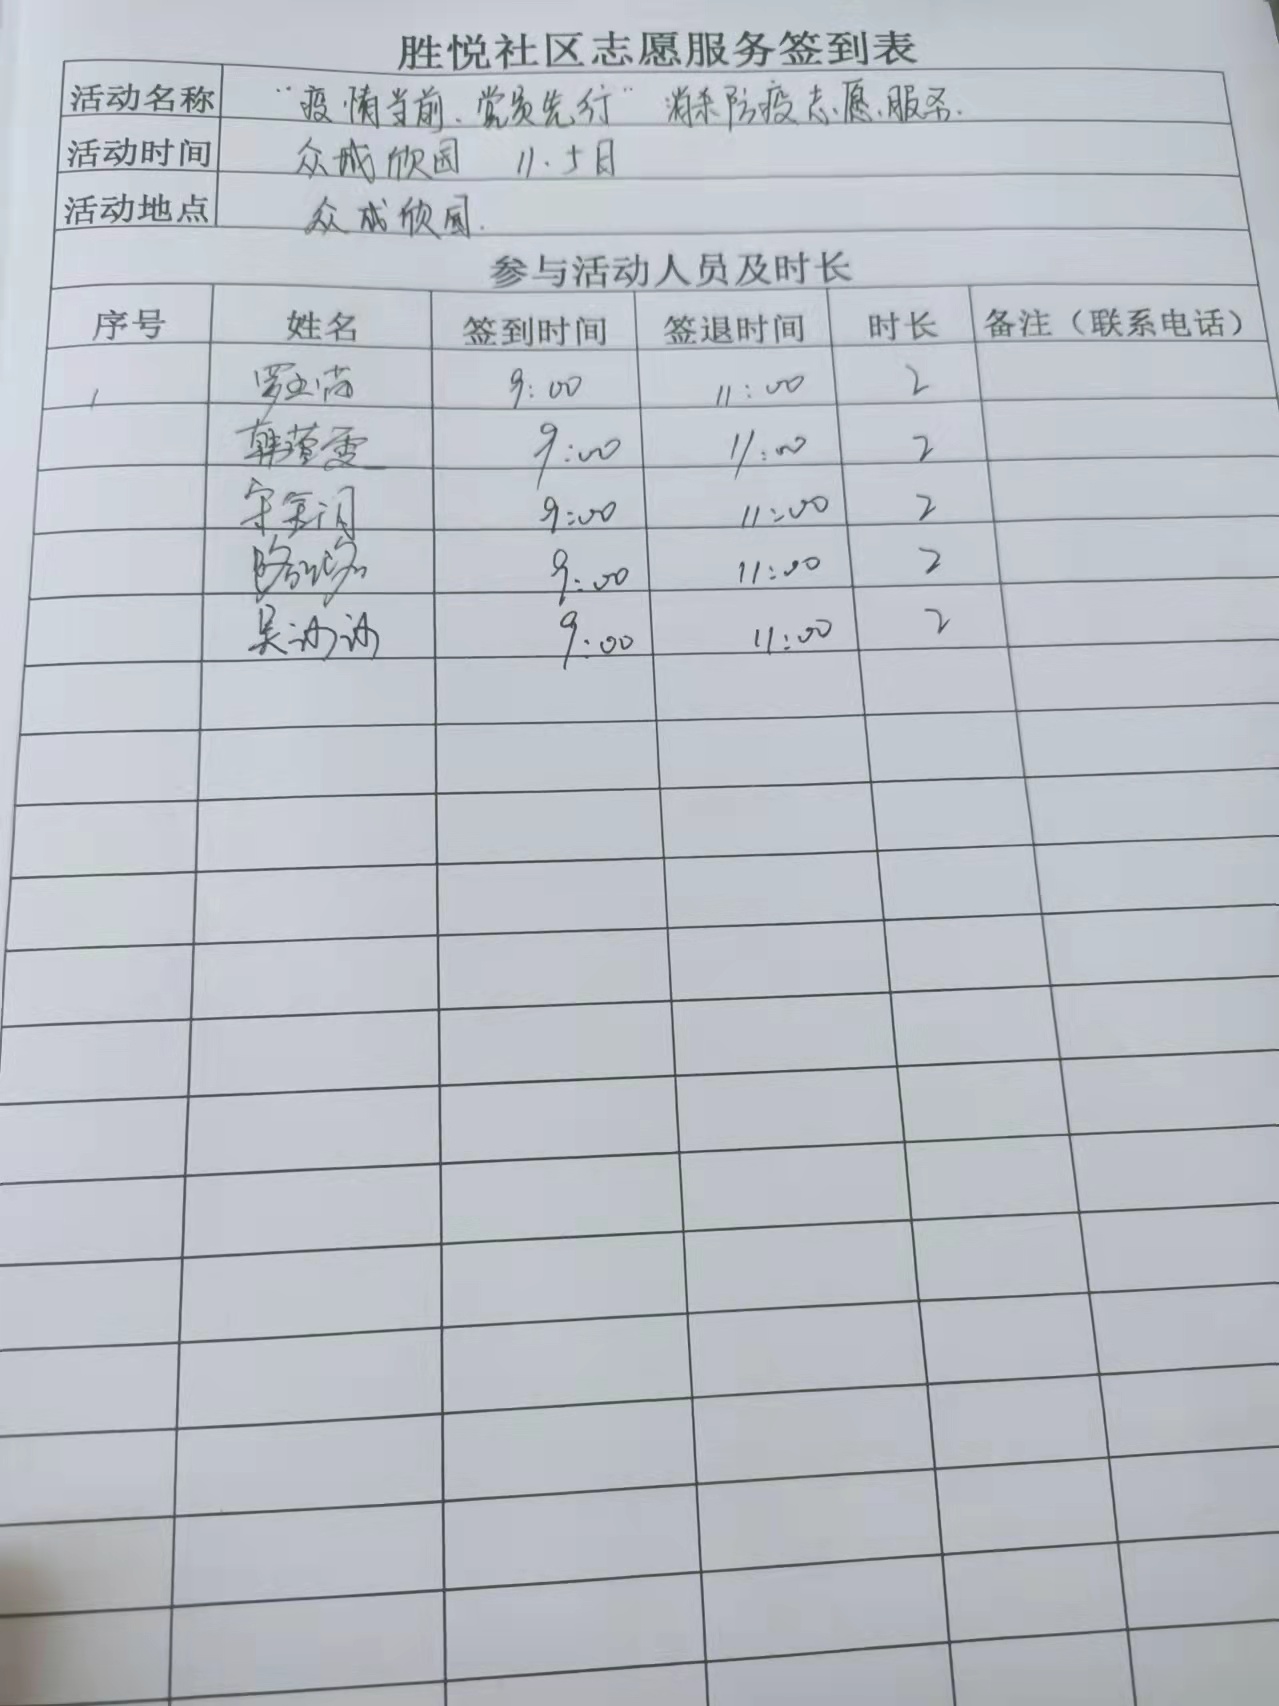 胜悦社区志愿服务签到表
活动名称 “疫情当前、党员先行” 消杀防疫志愿服务.
活动时间 众成欣园 11.5日
活动地点 众成欣园.
参与活动人员及时长
序号 姓名 签到时间 签退时间 时长 备注（联系电话）
1 9:00 11:00 2
韩莹雯 9:00 11:00 2
9:00 11:00 2
9:00 11:00 2
吴 9:00 11:00 2